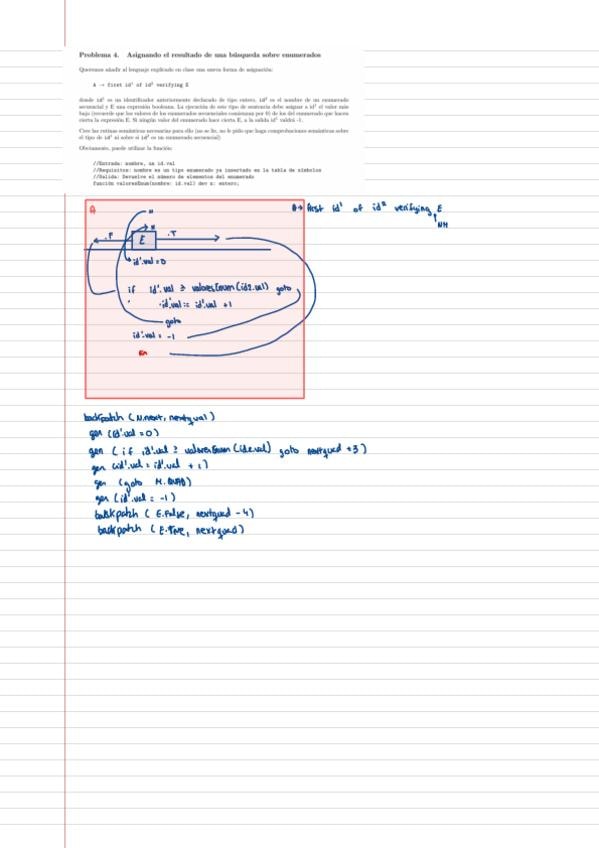 Problema 4. Asignando el resultado de una búsqueda sobre enumerados
Queremos añadir al lenguaje explicado en clase una nueva forma de asignación:
A → first id¹ of id² verifying E
donde id¹ es un identificador anteriormente declarado de tipo entero, id² es el nombre de un enumerado
secuencial y E una expresión booleana. La ejecución de este tipo de sentencia debe asignar a id¹ el valor más
bajo (recuerde que los valores de los enumerados secuenciales comienzan por 0) de los del enumerado que hacen
cierta la expresión E. Si ningún valor del enumerado hace cierta E, a la salida id¹ valdrá -1.
Cree las rutinas semánticas necesarias para ello (no se líe, no le pido que haga comprobaciones semánticas sobre
el tipo de id¹ ni sobre si id² es un enumerado secuencial)
Obviamente, puede utilizar la función:
//Entrada: nombre, un id.val
//Requisitos: nombre es un tipo enumerado ya insertado en la tabla de símbolos
//Salida: Devuelve el número de elementos del enumerado
función valoresEnum(nombre: id.val) dev n: entero;
A
A → first id¹ of id² verifying E
NM
N
M
.F
E
.T
id¹.val = 0
if id¹.val ≥ valoresEnum(id2.val) goto
id¹.val := id¹.val + 1
goto
id¹.val = -1
backpatch (N.next, nextquad)
gen (id¹.val = 0)
gen (if id¹.val ≥ valoresEnum (id2.val) goto nextquad +3)
gen (id¹.val = id¹.val + 1)
gen (goto M.QUAD)
gen (id¹.val = -1)
backpatch (E.False, nextquad - 4)
backpatch (E.True, nextquad)